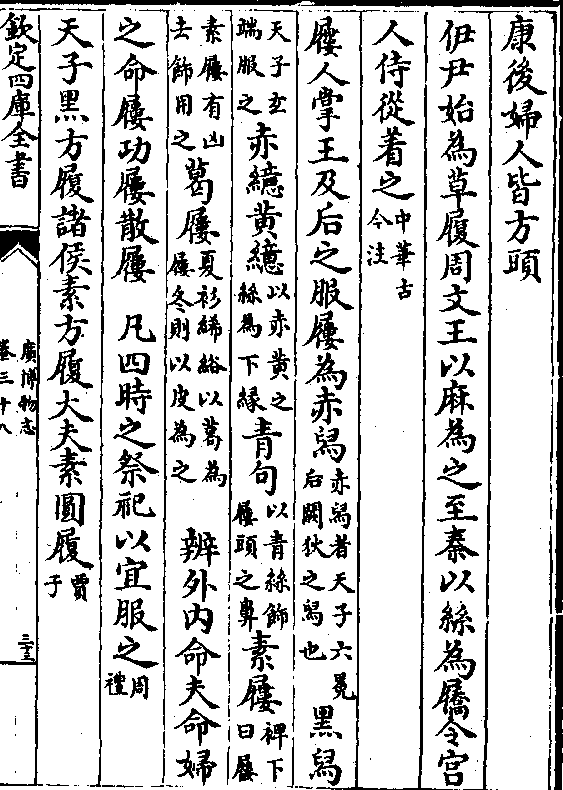 康後婦人皆方頭
伊尹始為草履周文王以麻為之至秦以絲為屩令宮
人侍從着之中華古今注
屨人掌王及后之服屨為赤舄赤舄者天子六冕后闕狄之舄也黑舄
天子玄端服之赤繶黃繶以赤黃之絲為下緣青句以青絲飾屨頭之鼻素屨禆下曰屨
素屨有凶去飾用之葛屨夏衫絺綌以葛為屨冬則以皮為之 辨外內命夫命婦
之命屨功屨散屨 凡四時之祭祀以宜服之周禮
天子黑方履諸侯素方履大夫素圓履賈子
欽定四庫全書
廣博物志
卷三十八
三十三